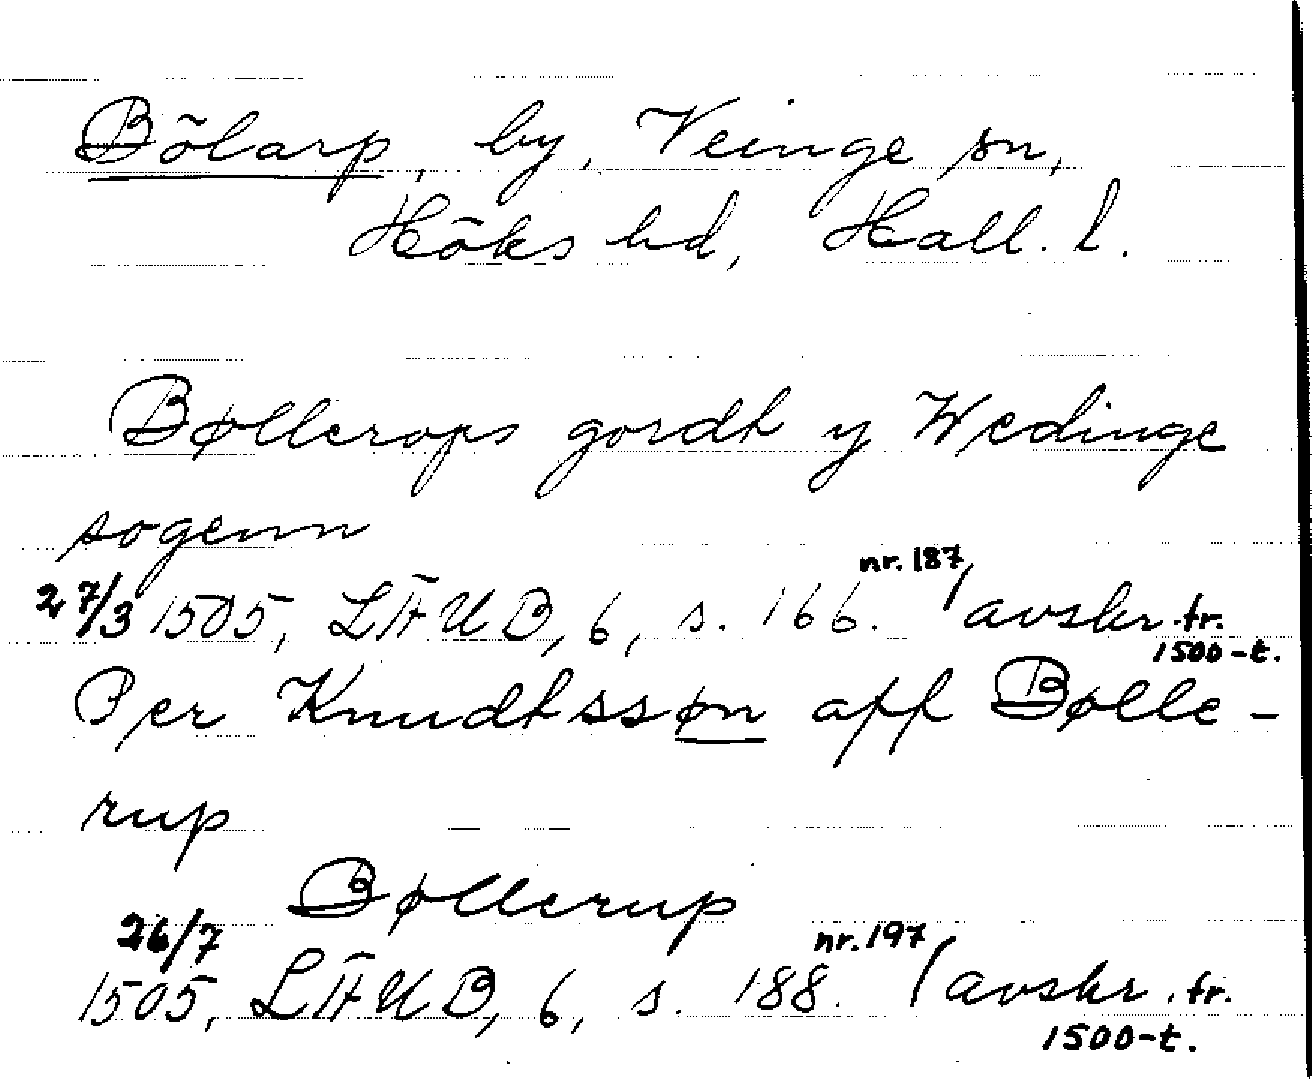 Bölarp, by, Veinge sn,
Höks hd, Hall. l.
Bøllerops gordh y Wedinge
sogenn
27/3 1505, LÄUB, 6, s. 166. nr. 187 / avskr. fr. 1500-t.
Per Knudhssøn aff Bølle-
rup
Bøllerup
26/7
1505, LÄUB, 6, s. 188. nr. 197 / avskr. fr. 1500-t.